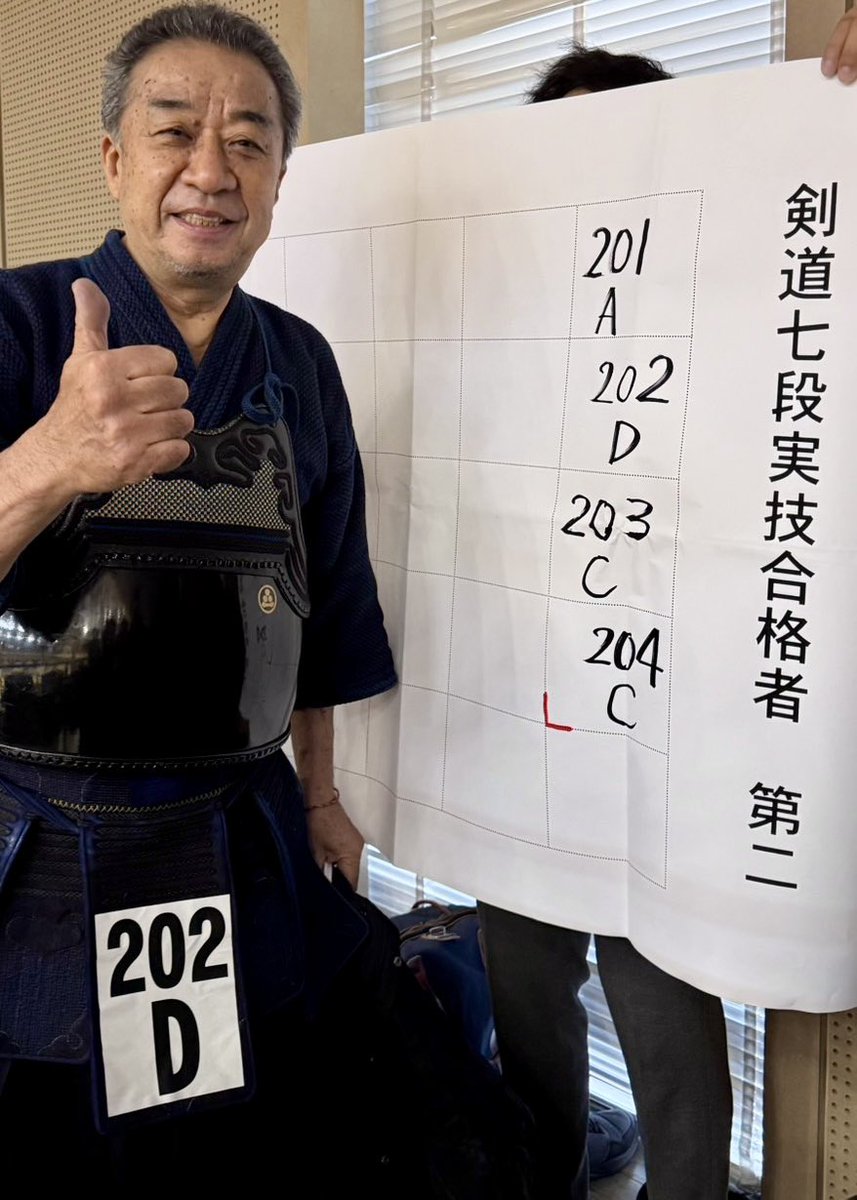 剣道七段実技合格者 第二
201
A
202
D
203
C
204
C
202
D